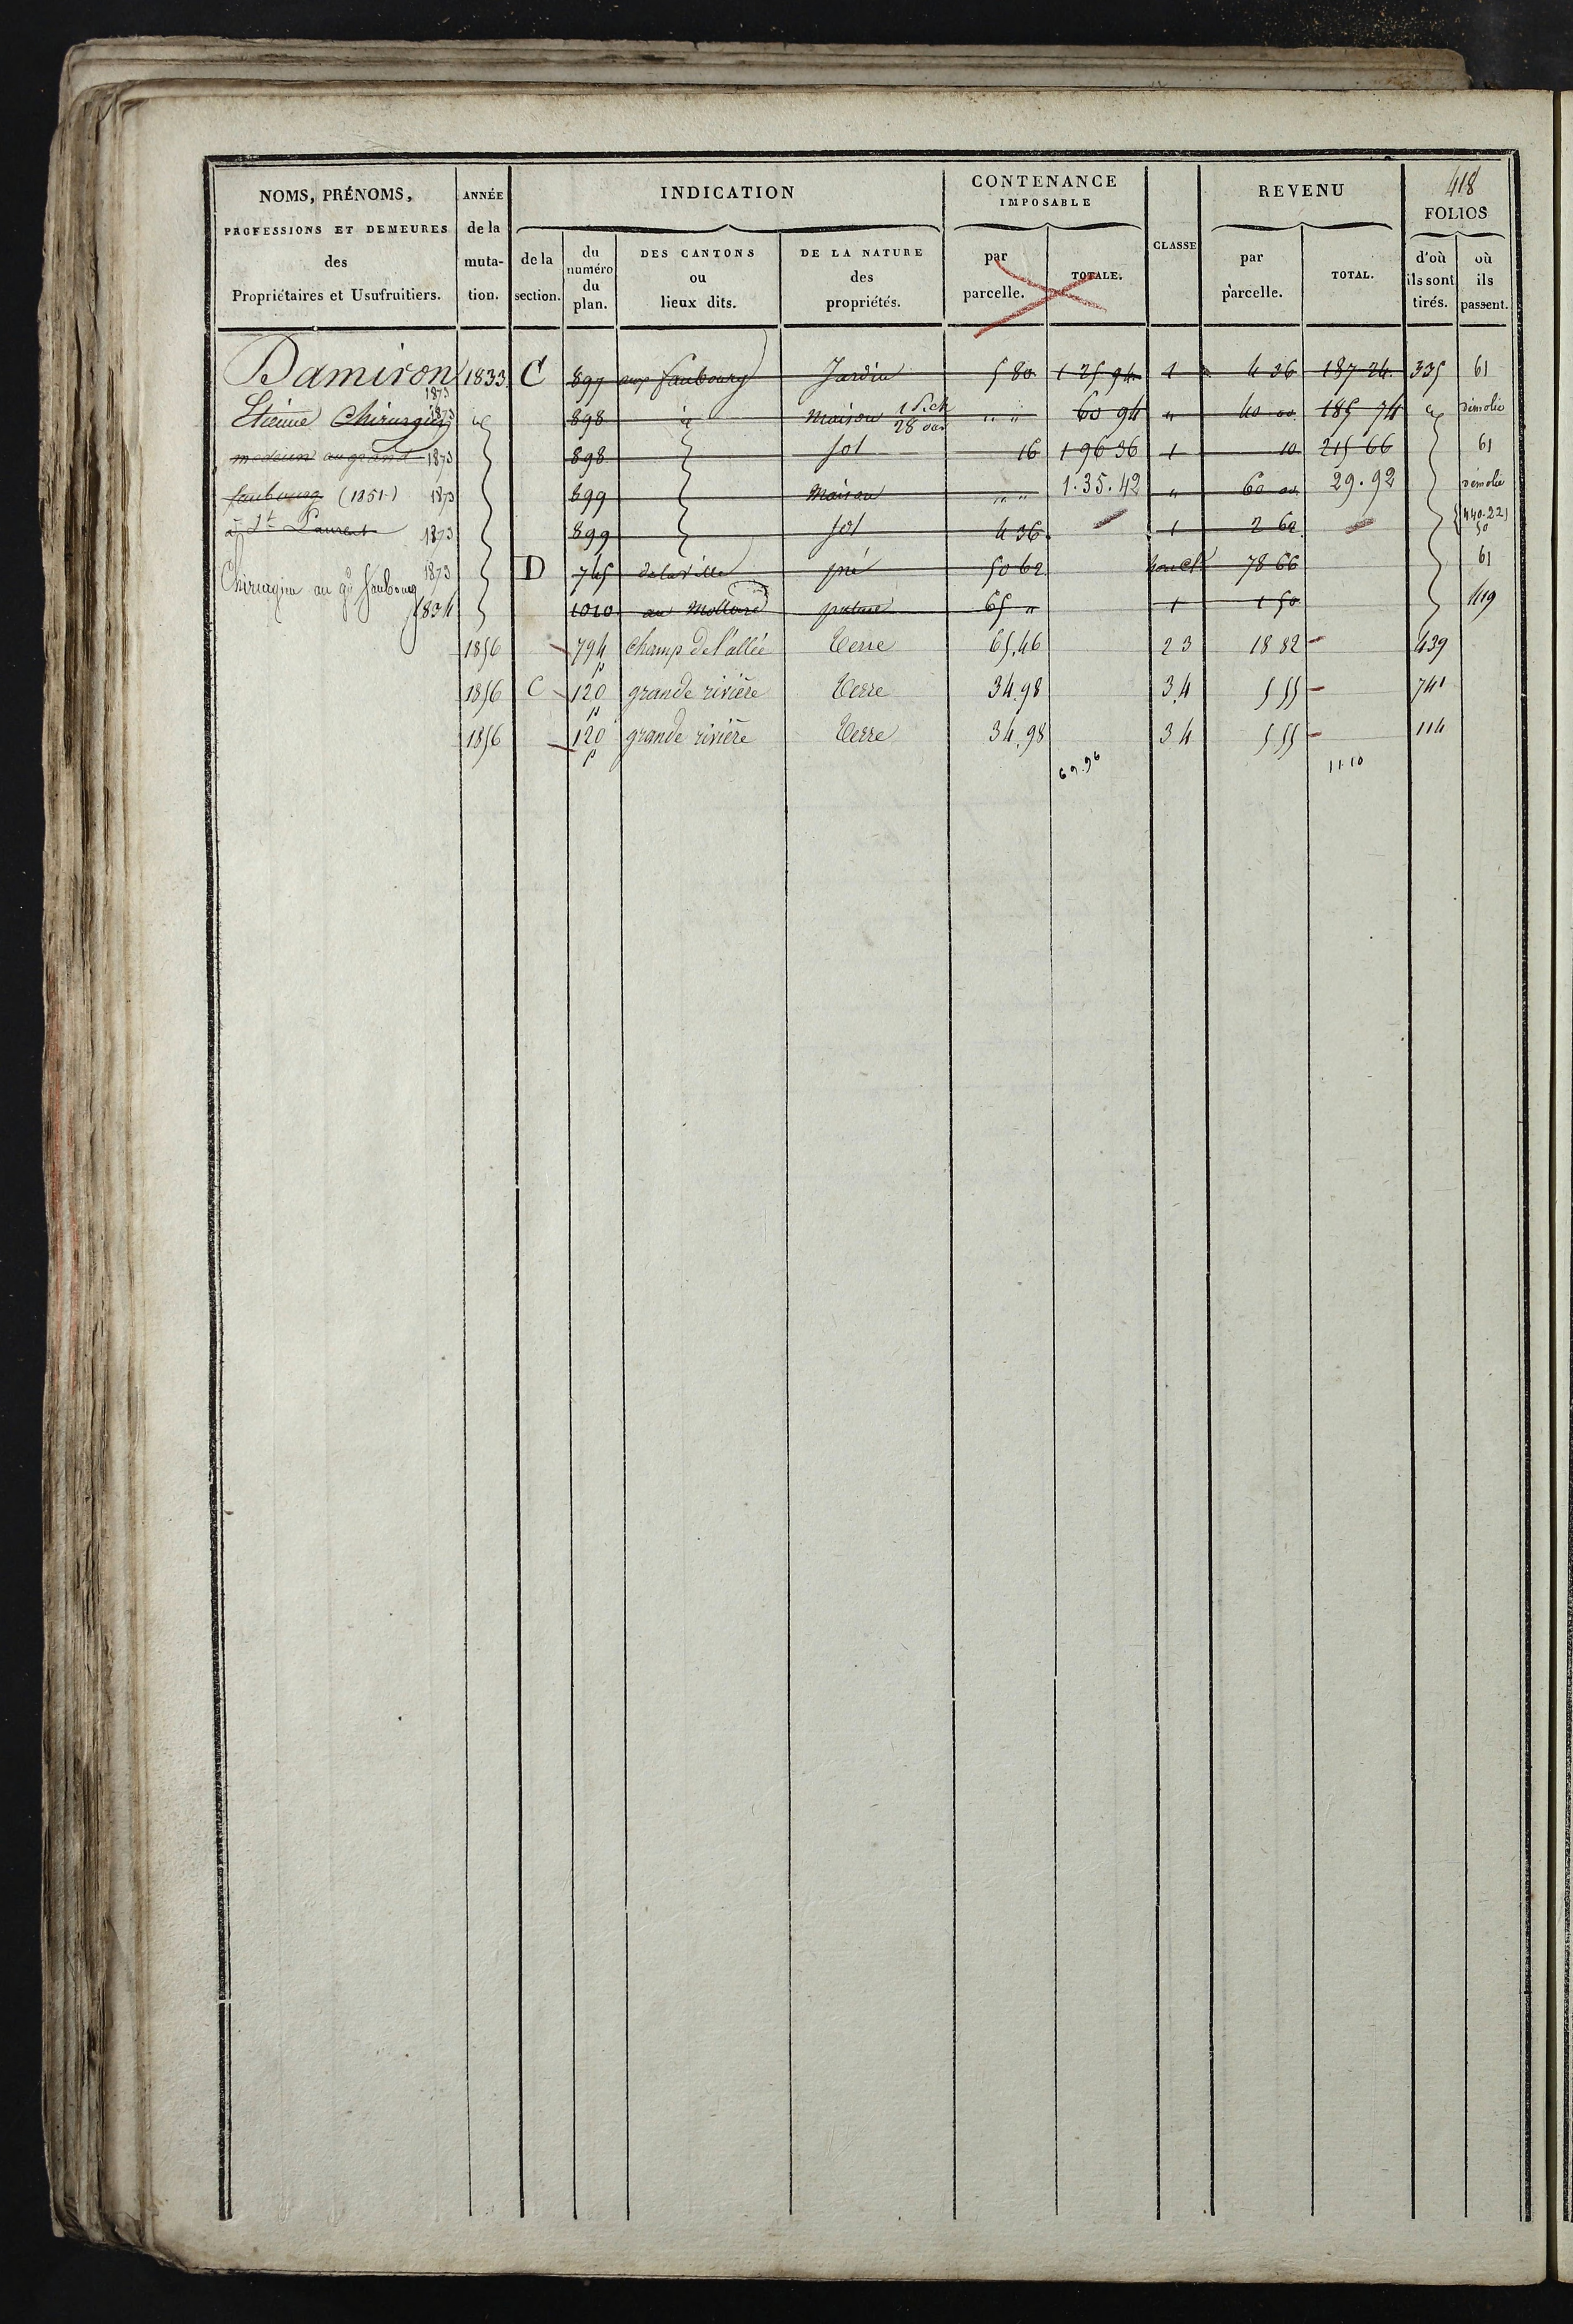 418
NOMS, PRÉNOMS, PROFESSIONS ET DEMEURES des Propriétaires et Usufruitiers.
ANNÉE de la muta- tion.
INDICATION
de la section.
du numéro du plan.
DES CANTONS ou lieux dits.
DE LA NATURE des propriétés.
CONTENANCE IMPOSABLE
par parcelle.
TOTALE.
CLASSE
REVENU
par parcelle.
TOTAL.
FOLIOS
d'où ils sont tirés.
où ils passent.
Damiron 1833 C 897 aux faubourg Jardin 5 80 1 25 94 1 4 36 187 24 335 61
1873
Etienne Chirurgien 1873 898 id Maison 28 " " 60 94 " 40 00 185 74 démolie
medecin au grand 1873 898 sol 16 1 96 36 1 10 215 66 61
faubourg (1851) 1873 899 Maison " " 1.35.42 " 60 00 29.92 démolie
à St Laurent 1873 899 sol 4 36 1 2 62 440.221 50
1873 D 745 de la ville pré 50 62 78 66 61
Chirurgien au gd faubourg 1834 1010 pature 65 " 1 1 50 119
1856 794 p champ de l'allée Terre 65.46 2 3 18 82 439
1856 C 120 p grande rivière Terre 34.98 3.4 5 55 741
1856 120 p grande rivière Terre 34.98 3 4 5 55 114
69.96 11.10